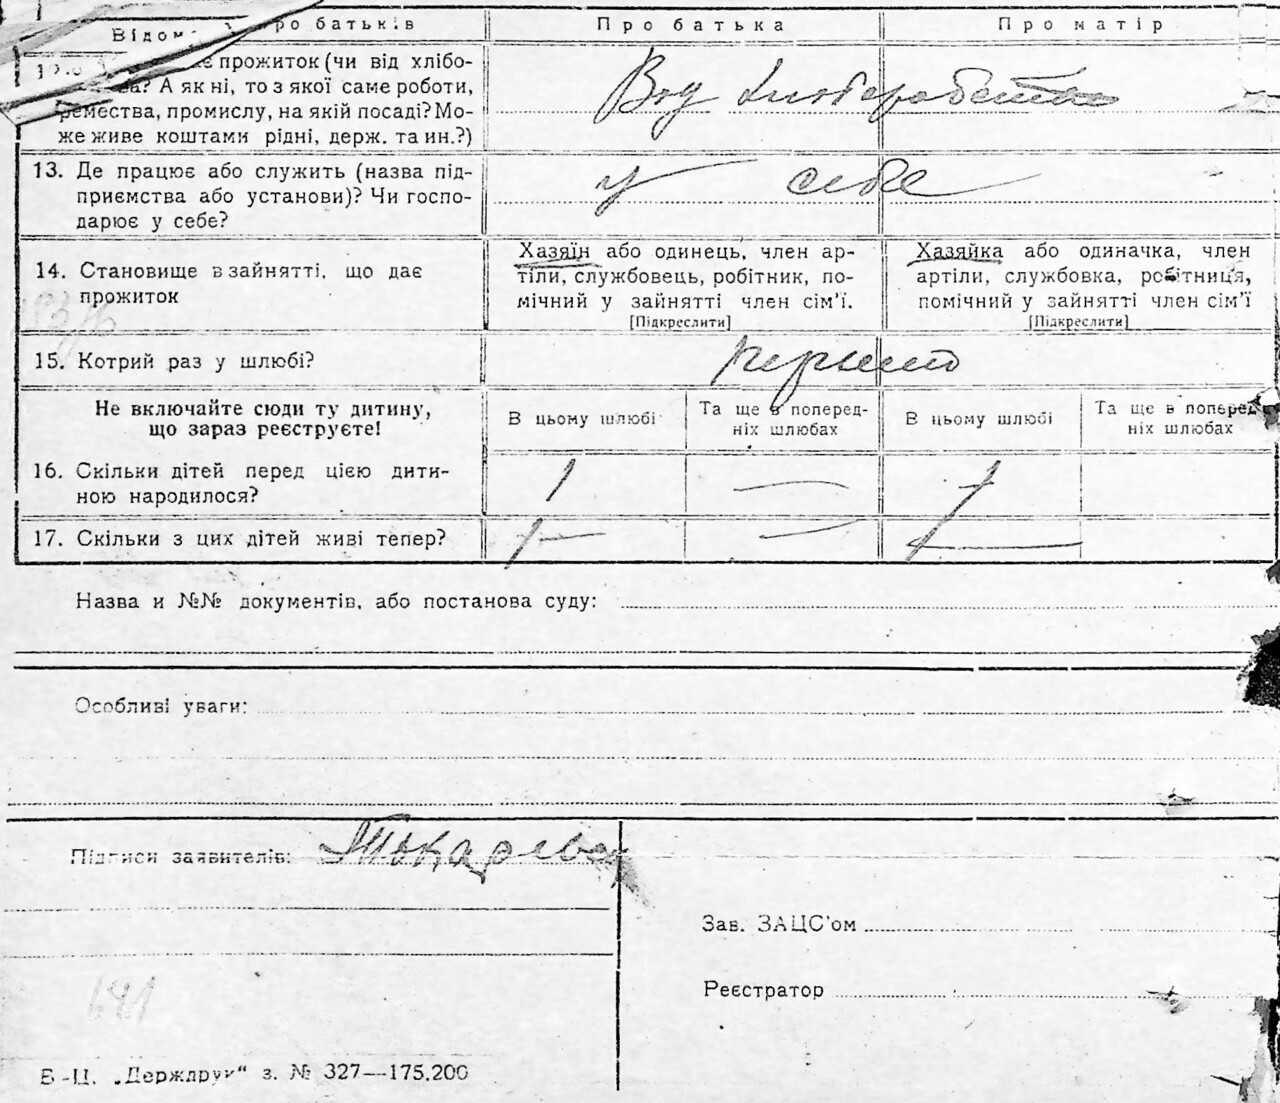 Відом про батьків Про батька Про матір
прожиток (чи від хлібо-
ва? А як ні, то з якої саме роботи,
ремества, промислу, на якій посаді? Мо-
же живе коштами рідні, держ. та ин.?)
Вод хлеборобства
13. Де працює або служить (назва під-
приємства або установи)? Чи госпо-
дарює у себе?
у себе
14. Становище в зайнятті, що дає
прожиток
Хазяїн або одинець, член ар-
тіли, службовець, робітник, по-
мічний у зайнятті член сім'ї.
[Підкреслити]
Хазяйка або одиначка, член
артіли, службовка, робітниця,
помічний у зайнятті член сім'ї
[Підкреслити]
15. Котрий раз у шлюбі?
Не включайте сюди ту дитину,
що зараз реєструєте!
В цьому шлюбі
Та ще в поперед-
ніх шлюбах
В цьому шлюбі
Та ще в поперед
ніх шлюбах
16. Скільки дітей перед цією дити-
ною народилося?
1 — 1
17. Скільки з цих дітей живі тепер?
1 — — 1 —
Назва и №№ документів, або постанова суду:
Особливі уваги:
Підписи заявителів: Токарева
Зав. ЗАЦС'ом
Реєстратор
641
Б-Ц. „Держдрук" з. № 327—175.200